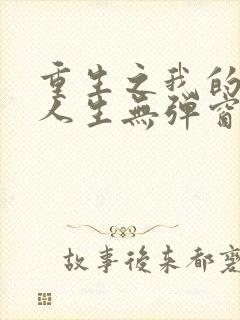 重生之我的
人生無彈窗
故事後来都